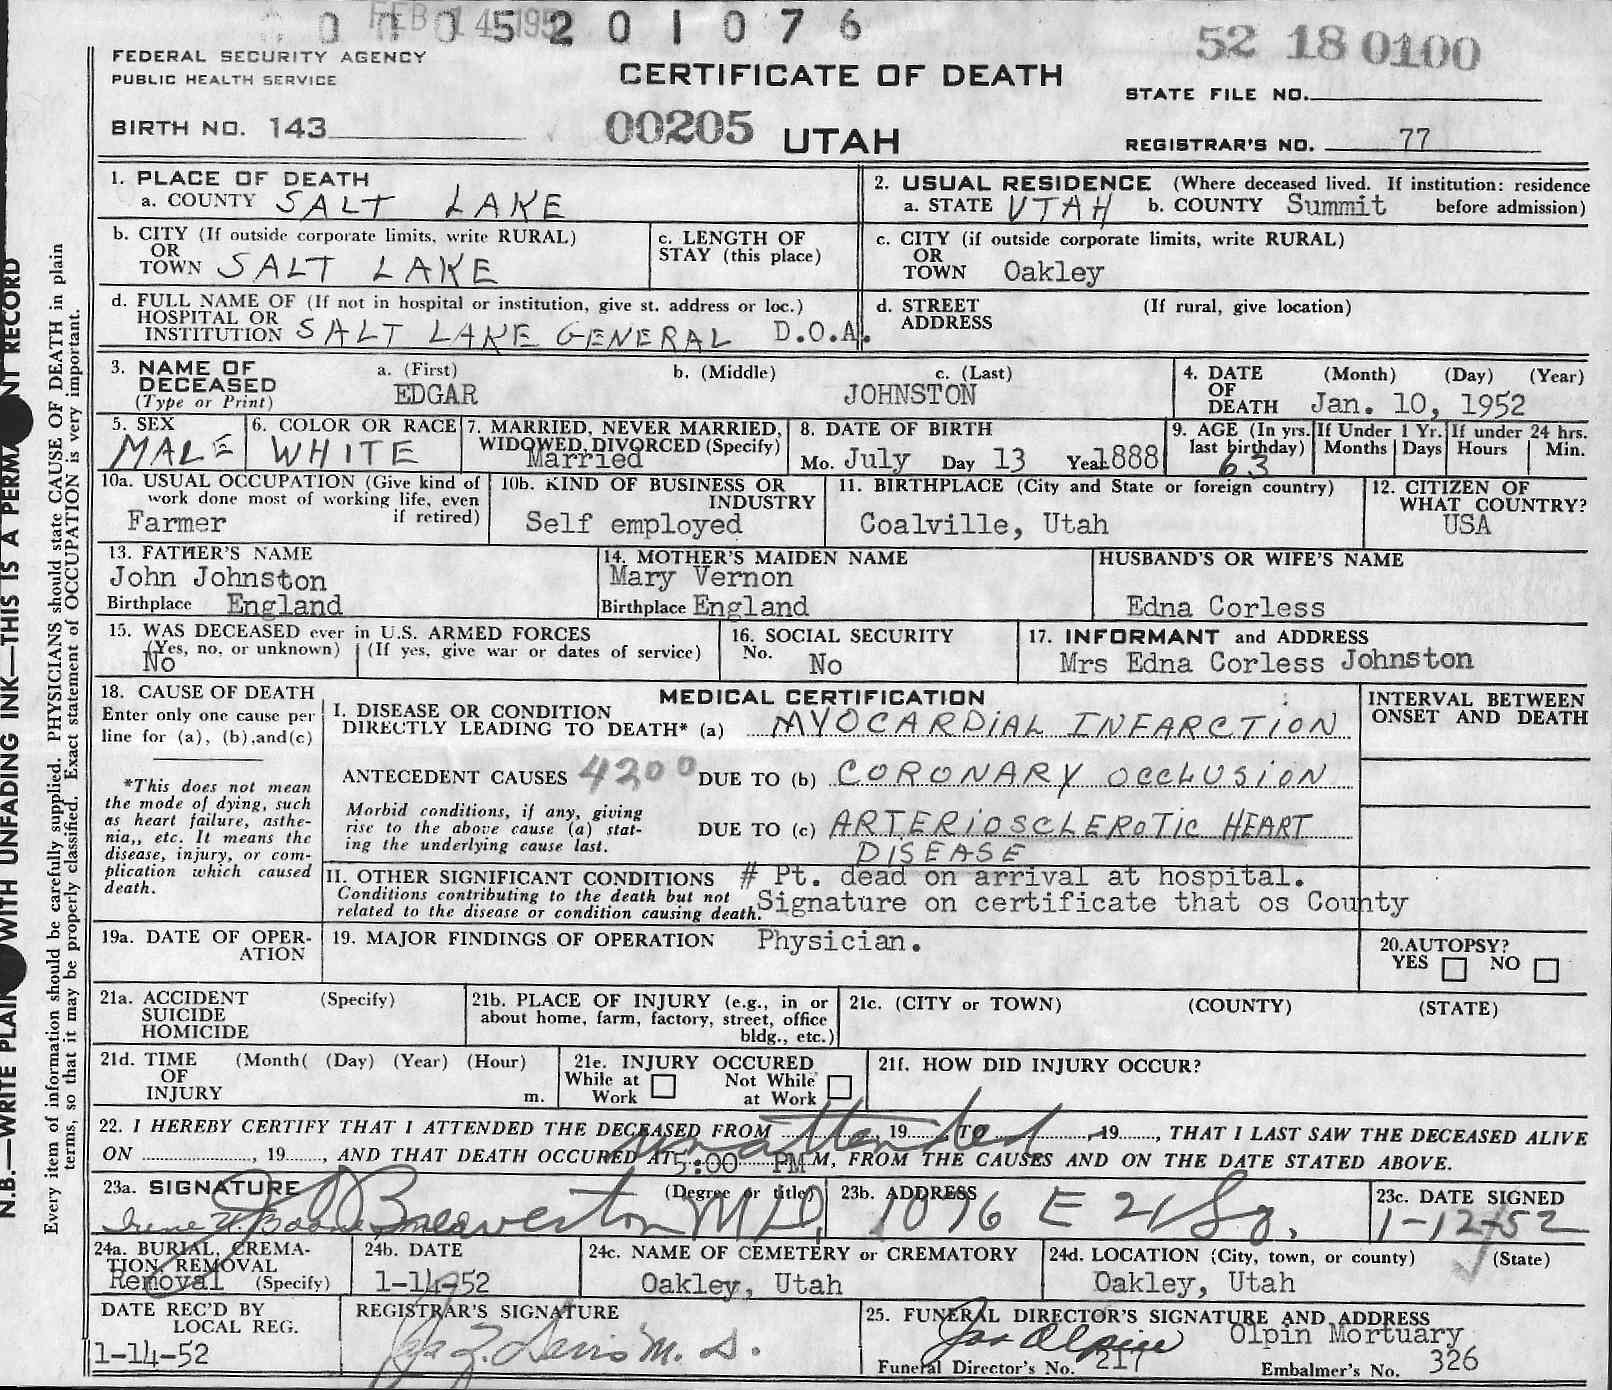 FEB 14 195
0 0 0 5 2 0 1 0 7 6
52 18 0100
FEDERAL SECURITY AGENCY
PUBLIC HEALTH SERVICE
CERTIFICATE OF DEATH
STATE FILE NO.
BIRTH NO. 143
00205 UTAH
REGISTRAR'S NO. 77
1. PLACE OF DEATH
a. COUNTY SALT LAKE
2. USUAL RESIDENCE (Where deceased lived. If institution: residence
a. STATE UTAH b. COUNTY Summit before admission)
b. CITY (If outside corporate limits, write RURAL)
OR
TOWN SALT LAKE
c. LENGTH OF
STAY (this place)
c. CITY (if outside corporate limits, write RURAL)
OR
TOWN Oakley
d. FULL NAME OF (If not in hospital or institution, give st. address or loc.)
HOSPITAL OR
INSTITUTION SALT LAKE GENERAL D.O.A.
d. STREET (If rural, give location)
ADDRESS
3. NAME OF a. (First) b. (Middle) c. (Last)
DECEASED EDGAR JOHNSTON
(Type or Print)
4. DATE (Month) (Day) (Year)
OF
DEATH Jan. 10, 1952
5. SEX
MALE
6. COLOR OR RACE
WHITE
7. MARRIED, NEVER MARRIED,
WIDOWED, DIVORCED (Specify)
Married
8. DATE OF BIRTH
Mo. July Day 13 Year 1888
9. AGE (In yrs.
last birthday)
63
If Under 1 Yr.
Months Days
If under 24 hrs.
Hours Min.
10a. USUAL OCCUPATION (Give kind of
work done most of working life, even
Farmer if retired)
10b. KIND OF BUSINESS OR
INDUSTRY
Self employed
11. BIRTHPLACE (City and State or foreign country)
Coalville, Utah
12. CITIZEN OF
WHAT COUNTRY?
USA
13. FATHER'S NAME
John Johnston
Birthplace England
14. MOTHER'S MAIDEN NAME
Mary Vernon
Birthplace England
HUSBAND'S OR WIFE'S NAME
Edna Corless
15. WAS DECEASED ever in U.S. ARMED FORCES
(Yes, no, or unknown) (If yes, give war or dates of service)
No
16. SOCIAL SECURITY
No.
No
17. INFORMANT and ADDRESS
Mrs Edna Corless Johnston
18. CAUSE OF DEATH
Enter only one cause per
line for (a), (b), and (c)
*This does not mean
the mode of dying, such
as heart failure, asthe-
nia,, etc. It means the
disease, injury, or com-
plication which caused
death.
MEDICAL CERTIFICATION
I. DISEASE OR CONDITION
DIRECTLY LEADING TO DEATH* (a) MYOCARDIAL INFARCTION
ANTECEDENT CAUSES 4200 DUE TO (b) CORONARY OCCLUSION
Morbid conditions, if any, giving
rise to the above cause (a) stat-
ing the underlying cause last.
DUE TO (c) ARTERIOSCLEROTIC HEART
DISEASE
INTERVAL BETWEEN
ONSET AND DEATH
II. OTHER SIGNIFICANT CONDITIONS # Pt. dead on arrival at hospital.
Conditions contributing to the death but not
related to the disease or condition causing death. Signature on certificate that os County
Physician.
19a. DATE OF OPER-
ATION
19. MAJOR FINDINGS OF OPERATION
20. AUTOPSY?
YES NO
21a. ACCIDENT (Specify)
SUICIDE
HOMICIDE
21b. PLACE OF INJURY (e.g., in or
about home, farm, factory, street, office
bldg., etc.)
21c. (CITY or TOWN) (COUNTY) (STATE)
21d. TIME (Month( (Day) (Year) (Hour)
OF
INJURY m.
21e. INJURY OCCURED
While at Work Not While at Work
21f. HOW DID INJURY OCCUR?
unattended
22. I HEREBY CERTIFY THAT I ATTENDED THE DECEASED FROM ......, 19......, TO ......, 19......, THAT I LAST SAW THE DECEASED ALIVE
ON ......, 19......, AND THAT DEATH OCCURED AT 5:00 PM M, FROM THE CAUSES AND ON THE DATE STATED ABOVE.
23a. SIGNATURE (Degree or title)
Beaverton M.D,
Irene H. Boone
23b. ADDRESS
1896 E 21 So.
23c. DATE SIGNED
1-12-52
24a. BURIAL, CREMA-
TION, REMOVAL
Removal (Specify)
24b. DATE
1-14-52
24c. NAME OF CEMETERY or CREMATORY
Oakley, Utah
24d. LOCATION (City, town, or county) (State)
Oakley, Utah
DATE REC'D BY
LOCAL REG.
1-14-52
REGISTRAR'S SIGNATURE
M. D.
25. FUNERAL DIRECTOR'S SIGNATURE AND ADDRESS
Jas Olpin Olpin Mortuary
Funeral Director's No. 217 Embalmer's No. 326
N.B.—WRITE PLAIN WITH UNFADING INK—THIS IS A PERMA NT RECORD
Every item of information should be carefully supplied. PHYSICIANS should state CAUSE OF DEATH in plain
terms, so that it may be properly classified. Exact statement of OCCUPATION is very important.